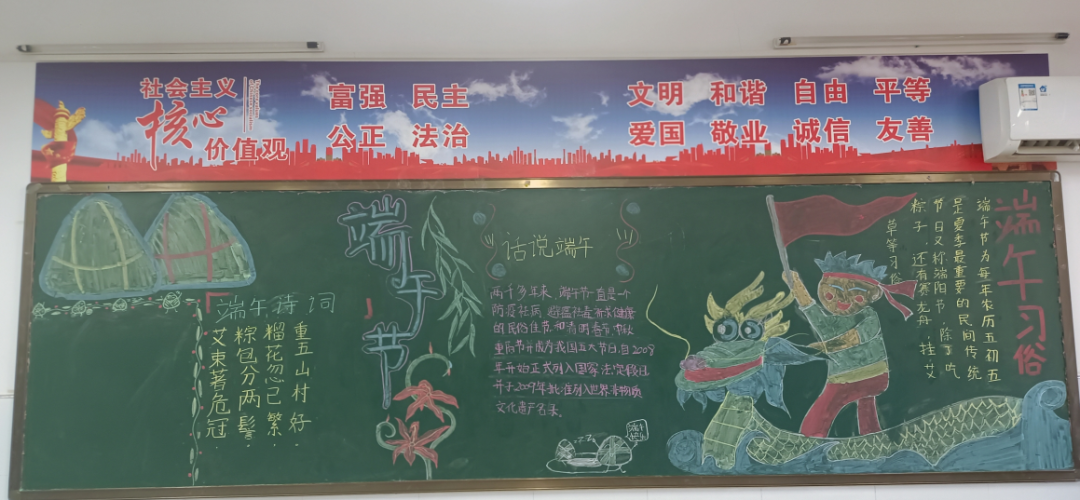 社会主义
核心
价值观
富强 民主
公正 法治
文明 和谐 自由 平等
爱国 敬业 诚信 友善
端午诗词
重五山村好，
榴花忽已繁。
粽包分两髻，
艾束著危冠
端午节
话说端午
两千多年来，端午节一直是一个
的民俗佳节，和清明春节中秋
重阳节并成为我国五大节日，自2008
年开始正式列入国家法定假日
并于2009年批准列入世界非物质
文化遗产名录
端午习俗
端午节为每年农历五初五
是夏季最重要的民间传统
节日又称端阳节，除了吃
粽子，还有赛龙舟，挂艾
草等习俗